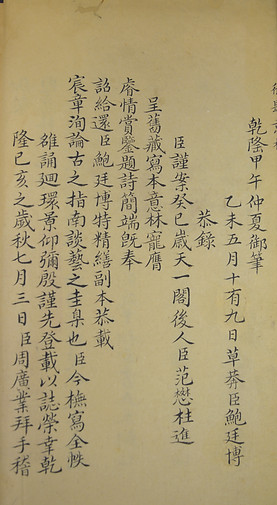 乾隆甲午仲夏御筆
乙未五月十有九日草莽臣鮑廷博
恭錄
臣謹案癸巳歲天一閣後人臣范懋柱進
呈舊藏寫本意林寵膺
睿情賞鑒題詩簡端旣奉
詔給還臣鮑廷博特精繕副本恭載
宸章洵論古之指南談藝之圭臬也臣今橅寫全帙
雒誦廻環景仰彌殷謹先登載以誌榮幸乾
隆己亥之歲秋七月三日臣周廣業拜手稽